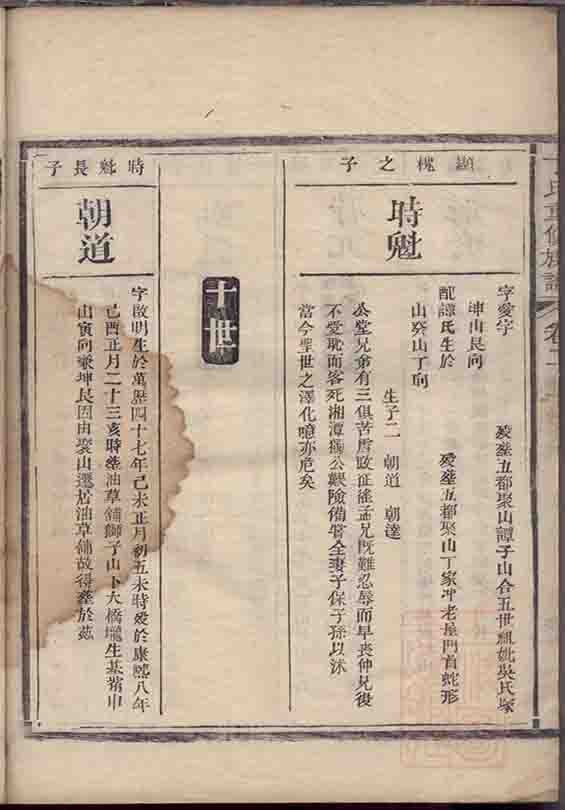 丁氏重修族譜 卷二
顯槐之子
時魁
字愛宇 歿塟五都聚山譚子山合五世祖妣吳氏塚
坤山艮向
配譚氏生於 歿塟五都聚山丁家冲老屋門首蛇形
山癸山丁向
生子二 朝道 朝達
公堂兄弟有三俱苦虐政征徭孟兄既難忍辱而早喪仲兄復
不受恥而客死湘潭獨公艱險備嘗全妻子保子孫以沐
當今聖世之澤化噫亦危矣
十世
時魁長子
朝道
字啟明生於萬歷四十七年己未正月初五未時歿於康熙八年
己酉正月二十三亥時塟油草舖獅子山下大橋壠生基背申
山寅向兼坤艮因由聚山遷居油草舖故得塟於茲